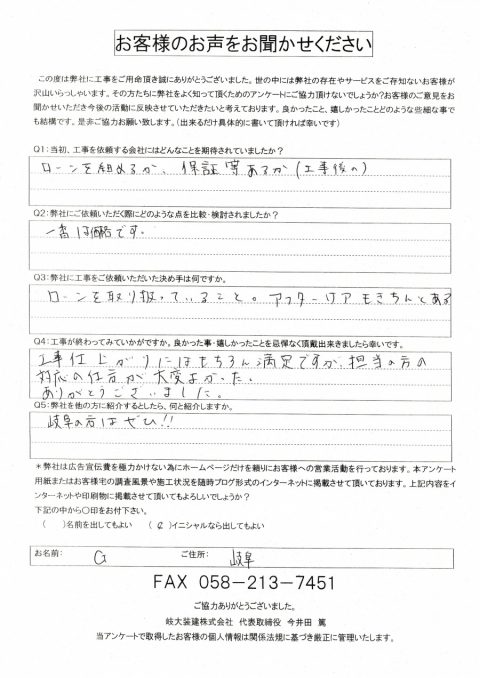 お客様のお声をお聞かせください
この度は弊社に工事をご用命頂き誠にありがとうございました。世の中には弊社の存在やサービスをご存知ないお客様が
沢山いらっしゃいます。その方たちに弊社をよく知って頂くためのアンケートにご協力頂けないでしょうか?お客様のご意見をお
聞かせいただき今後の活動に反映させていただきたいと考えております。良かったこと、嬉しかったことどのような些細な事で
も結構です。是非ご協力お願い致します。（出来るだけ具体的に書いて頂ければ幸いです）
Q1:当初、工事を依頼する会社にはどんなことを期待されていましたか?
ローンを組めるか、保証等あるか（工事後の）
Q2:弊社にご依頼いただく際にどのような点を比較・検討されましたか?
一番は価格です。
Q3:弊社に工事をご依頼いただいた決め手は何ですか。
ローンを取り扱っていること。アフターケアもきちんとある
Q4:工事が終わってみていかがですか。良かった事・嬉しかったことを忌憚なく頂戴出来きましたら幸いです。
工事仕上がりにはもちろん満足ですが、担当の方の
対応の仕方が大変よかった。
ありがとうございました。
Q5:弊社を他の方に紹介するとしたら、何と紹介しますか。
岐阜の方はぜひ!!
＊弊社は広告宣伝費を極力かけない為にホームページだけを頼りにお客様への営業活動を行っております。本アンケート
用紙またはお客様宅の調査風景や施工状況を随時ブログ形式のインターネットに掲載させて頂いております。上記内容をイ
ンターネットや印刷物に掲載させて頂いてもよろしいでしょうか?
下記の中から〇印をお付下さい。
（　）名前を出してもよい　（〇）イニシャルなら出してもよい
お名前: G ご住所: 岐阜
FAX 058－213－7451
ご協力ありがとうございました。
岐大装建株式会社 代表取締役 今井田 篤
当アンケートで取得したお客様の個人情報は関係法規に基づき厳正に管理いたします。